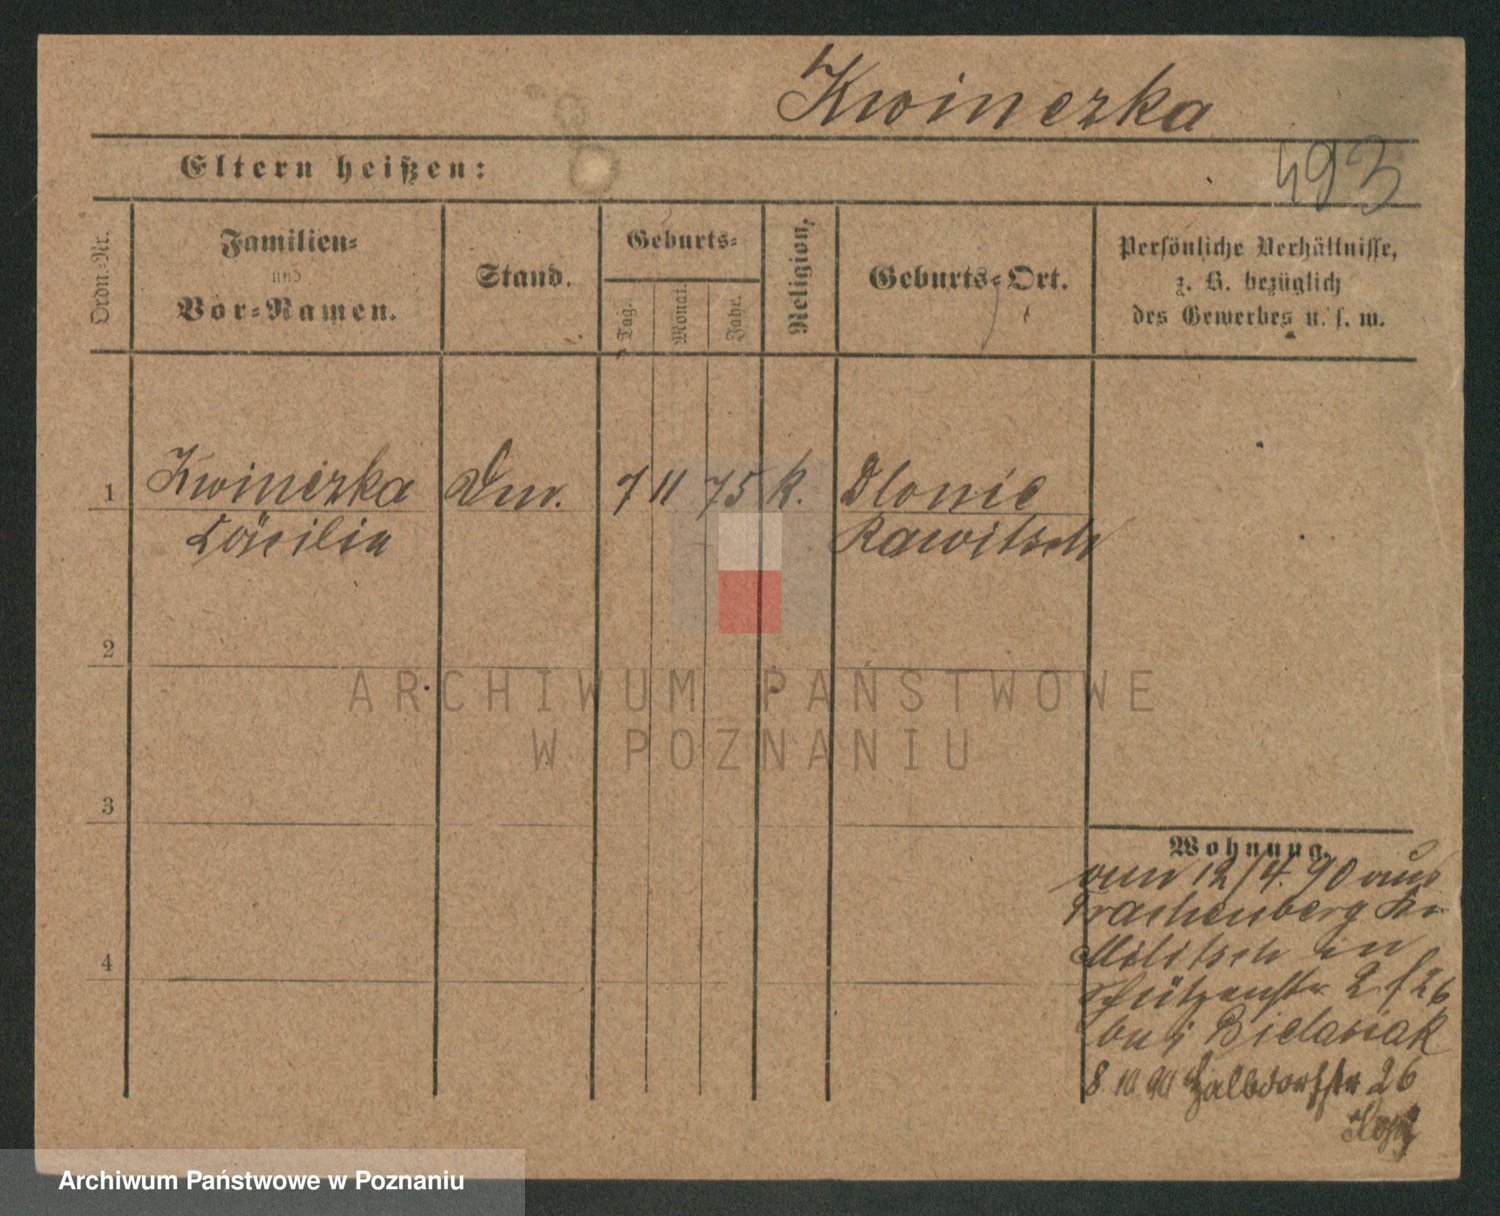 Kwinezka
493
Eltern heißen:
Ordn.-Nr.
Familien-
und
Vor-Namen.
Stand.
Geburts-
Tag.
Monat.
Jahr.
Religion,
Geburts-Ort.
Persönliche Verhältnisse,
z. B. bezüglich
des Gewerbes u. s. w.
1 Kwinezka 7 11 75 k. Dlonie
Cäcilia Rawitsch
2
3
4
Wohnung.
am 12/4. 90 aus
Trachenberg Kr
Militsch in
Schützenstr. 2 f 26
bei Bielasiak
8. 10. 90 Halbdorfstr 26
ARCHIWUM PAŃSTWOWE
W POZNANIU
Archiwum Państwowe w Poznaniu